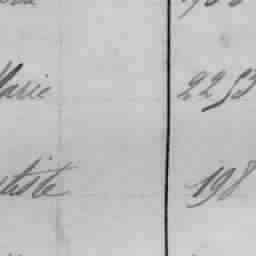 Marie 2253
tiste 198